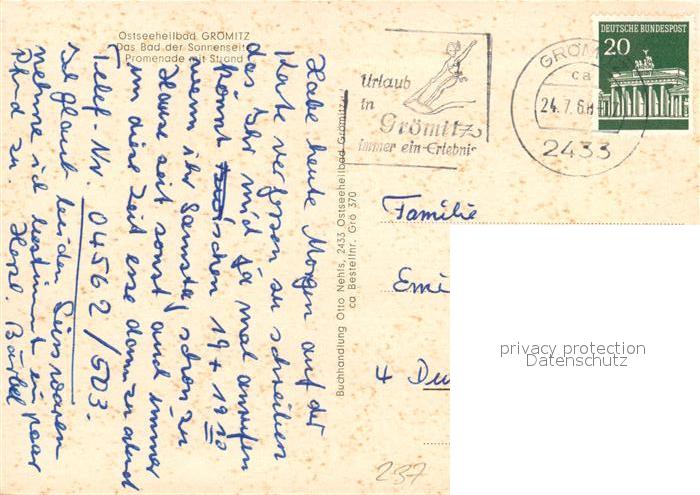 Ostseeheilbad GRÖMITZ
Das Bad der Sonnenseite
Promenade mit Strand
Habe heute Morgen auf der
Karte vergessen zu schreiben
das Ihr mich ja mal anrufen
könnt zwischen 19 + 19 30
wenn ihr Samstag schon zu
Hause seit sonst auch immer
um diese Zeit esse dann zu abend
Telef-Nr. 04562/503.
Ich glaub bei den Süßwaren
nehme ich bestimmt ein paar
Pfund zu. Herzl. Bärbel
Buchhandlung Otto Nehls, 2433 Ostseeheilbad Grömitz
ca Bestellnr. Grö 370
Urlaub
in
Grömitz
immer ein Erlebnis
GRÖMITZ
ca
24.7.68
2433
DEUTSCHE BUNDESPOST
20
Familie
Emi
4 Dü
237
privacy protection
Datenschutz